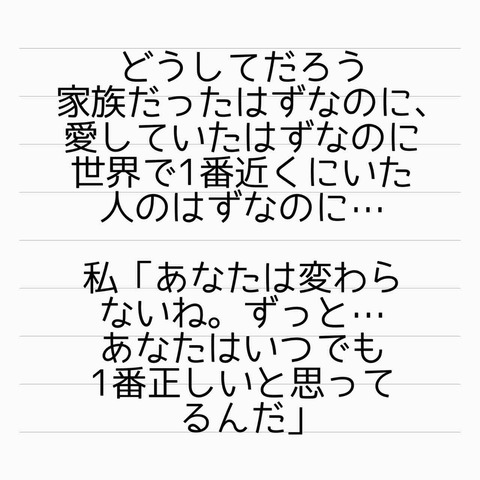 どうしてだろう
家族だったはずなのに、
愛していたはずなのに
世界で1番近くにいた
人のはずなのに…
私「あなたは変わら
ないね。ずっと…
あなたはいつでも
1番正しいと思って
るんだ」